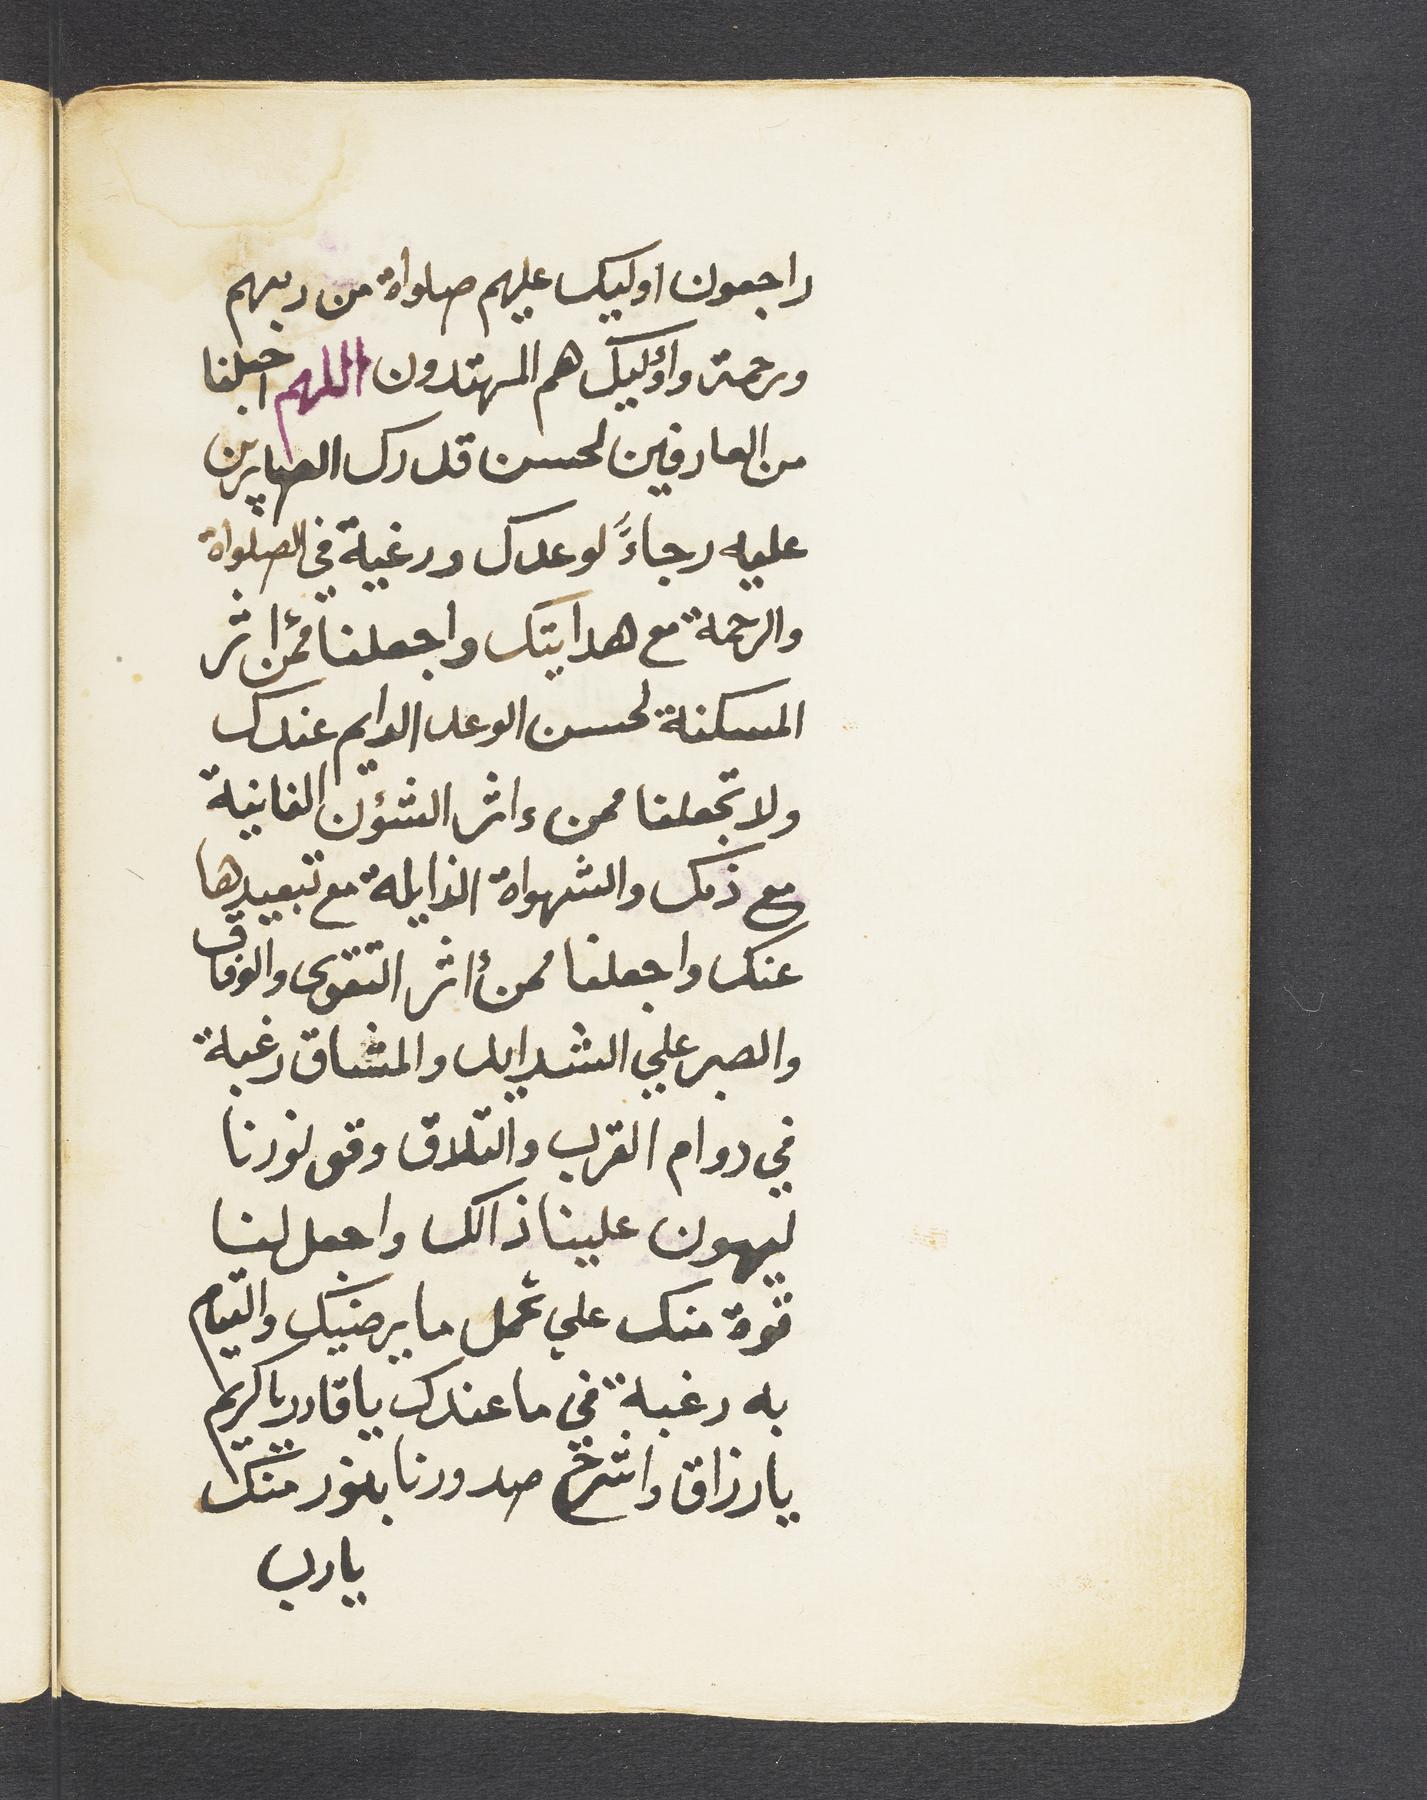 راجعون اوليك عليهم صلواة من ربهم
ورحمة واؤليك هم المهتدون اللهم اجعلنا
من العارفين لحسن قدرك الصابرين
عليه رجاءً لوعدك ورغبة في الصلواة
والرحمة مع هدايتك واجعلنا ممن اثر
المسكنة لحسن الوعد الدايم عندك
ولا تجعلنا ممن ءاثر الشؤن الفانية
مع ذمك والشهواة الزايلة مع تبعيدها
عنك واجعلنا ممن ءاثر التقوى والوفاق
والصبر علي الشدايد والمشاق رغبة
في دوام القرب والتلاق وقو نورنا
ليهون علينا ذالك واجعل لنا
قوة منك علي تحمل ما يرضيك والقيام
به رغبة في ما عندك يا قادر يا كريم
يا رزاق واشرح صدورنا بنور منك
يا رب